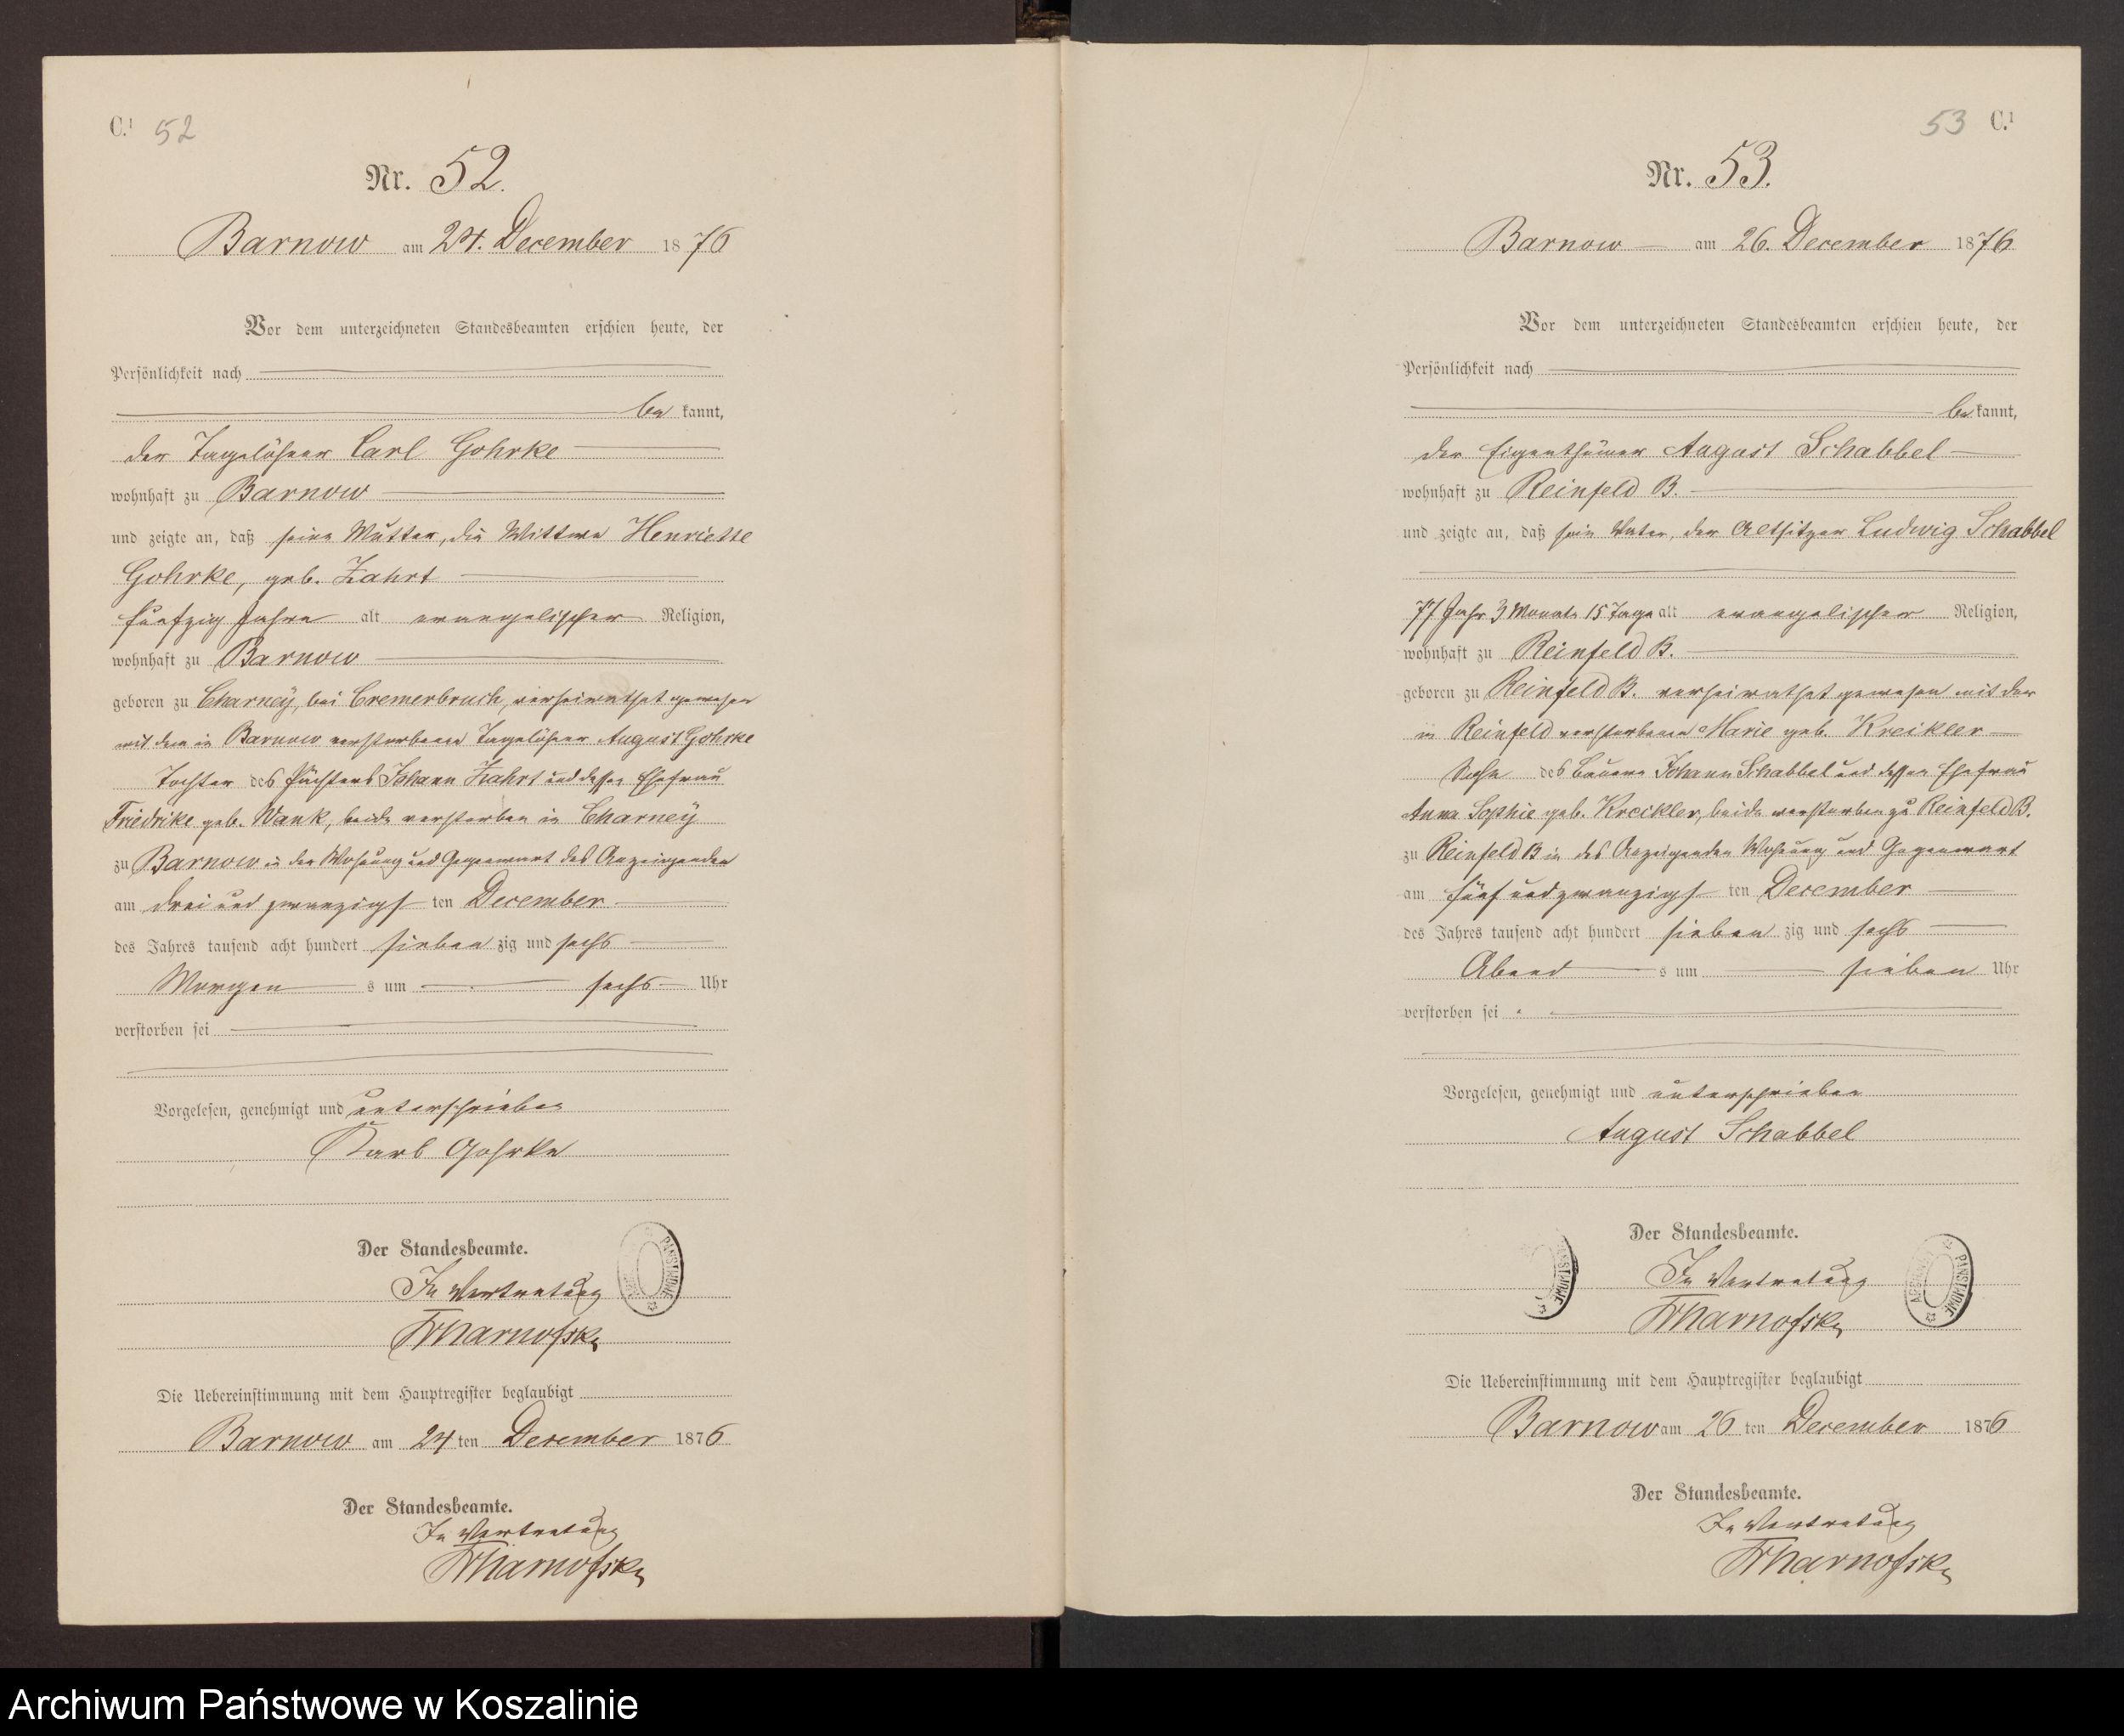 C.¹ 52
Nr. 52.
Barnow am 24. December 1876
Vor dem unterzeichneten Standesbeamten erschien heute, der
Persönlichkeit nach
be kannt,
der Tagelöhner Carl Gohrke
wohnhaft zu Barnow
und zeigte an, daß seine Mutter, die Wittwe Henriette
Gohrke, geb. Zahrt
funfzig Jahre alt evangelischer Religion,
wohnhaft zu Barnow
geboren zu Charney, bei Cremerbruch, verheirathet gewesen
mit dem in Barnow verstorbenen Tagelöhner August Gohrke
Tochter des Pächters Johann Zahrt und dessen Ehefrau
Friedrike geb. Wank, beide verstorben in Charney
zu Barnow in der Wohnung und Gegenwart des Anzeigenden
am drei und zwanzigs ten December
des Jahres tausend acht hundert sieben zig und sechs
Morgen s um sechs Uhr
verstorben sei
Vorgelesen, genehmigt und unterschrieben
Karl Gohrke
Der Standesbeamte.
In Vertretung
PANSTWOWE
Die Uebereinstimmung mit dem Hauptregister beglaubigt
Barnow am 24 ten December 1876
Der Standesbeamte.
In Vertretung
53 C.¹
Nr. 53.
Barnow am 26. December 1876
Vor dem unterzeichneten Standesbeamten erschien heute, der
Persönlichkeit nach
be kannt,
der Eigenthümer August Schabbel
wohnhaft zu Reinfeld B.
und zeigte an, daß sein Vater, der Altsitzer Ludwig Schabbel
77 Jahr 3 Monate 15 Tage alt evangelischer Religion,
wohnhaft zu Reinfeld B.
geboren zu Reinfeld B. verheirathet gewesen mit der
in Reinfeld verstorbenen Marie geb. Kreikler
Sohn des Bauern Johann Schabbel und dessen Ehefrau
Anna Sophie geb. Kreikler, beide verstorben zu Reinfeld B.
zu Reinfeld B in des Anzeigenden Wohnung und Gegenwart
am fünf und zwanzigs ten December
des Jahres tausend acht hundert sieben zig und sechs
Abend s um sieben Uhr
verstorben sei
Vorgelesen, genehmigt und unterschrieben
August Schabbel
Der Standesbeamte.
In Vertretung
ARCHIWUM PANSTWOWE
Die Uebereinstimmung mit dem Hauptregister beglaubigt
Barnow am 26 ten December 1876
Der Standesbeamte.
In Vertretung
Archiwum Państwowe w Koszalinie